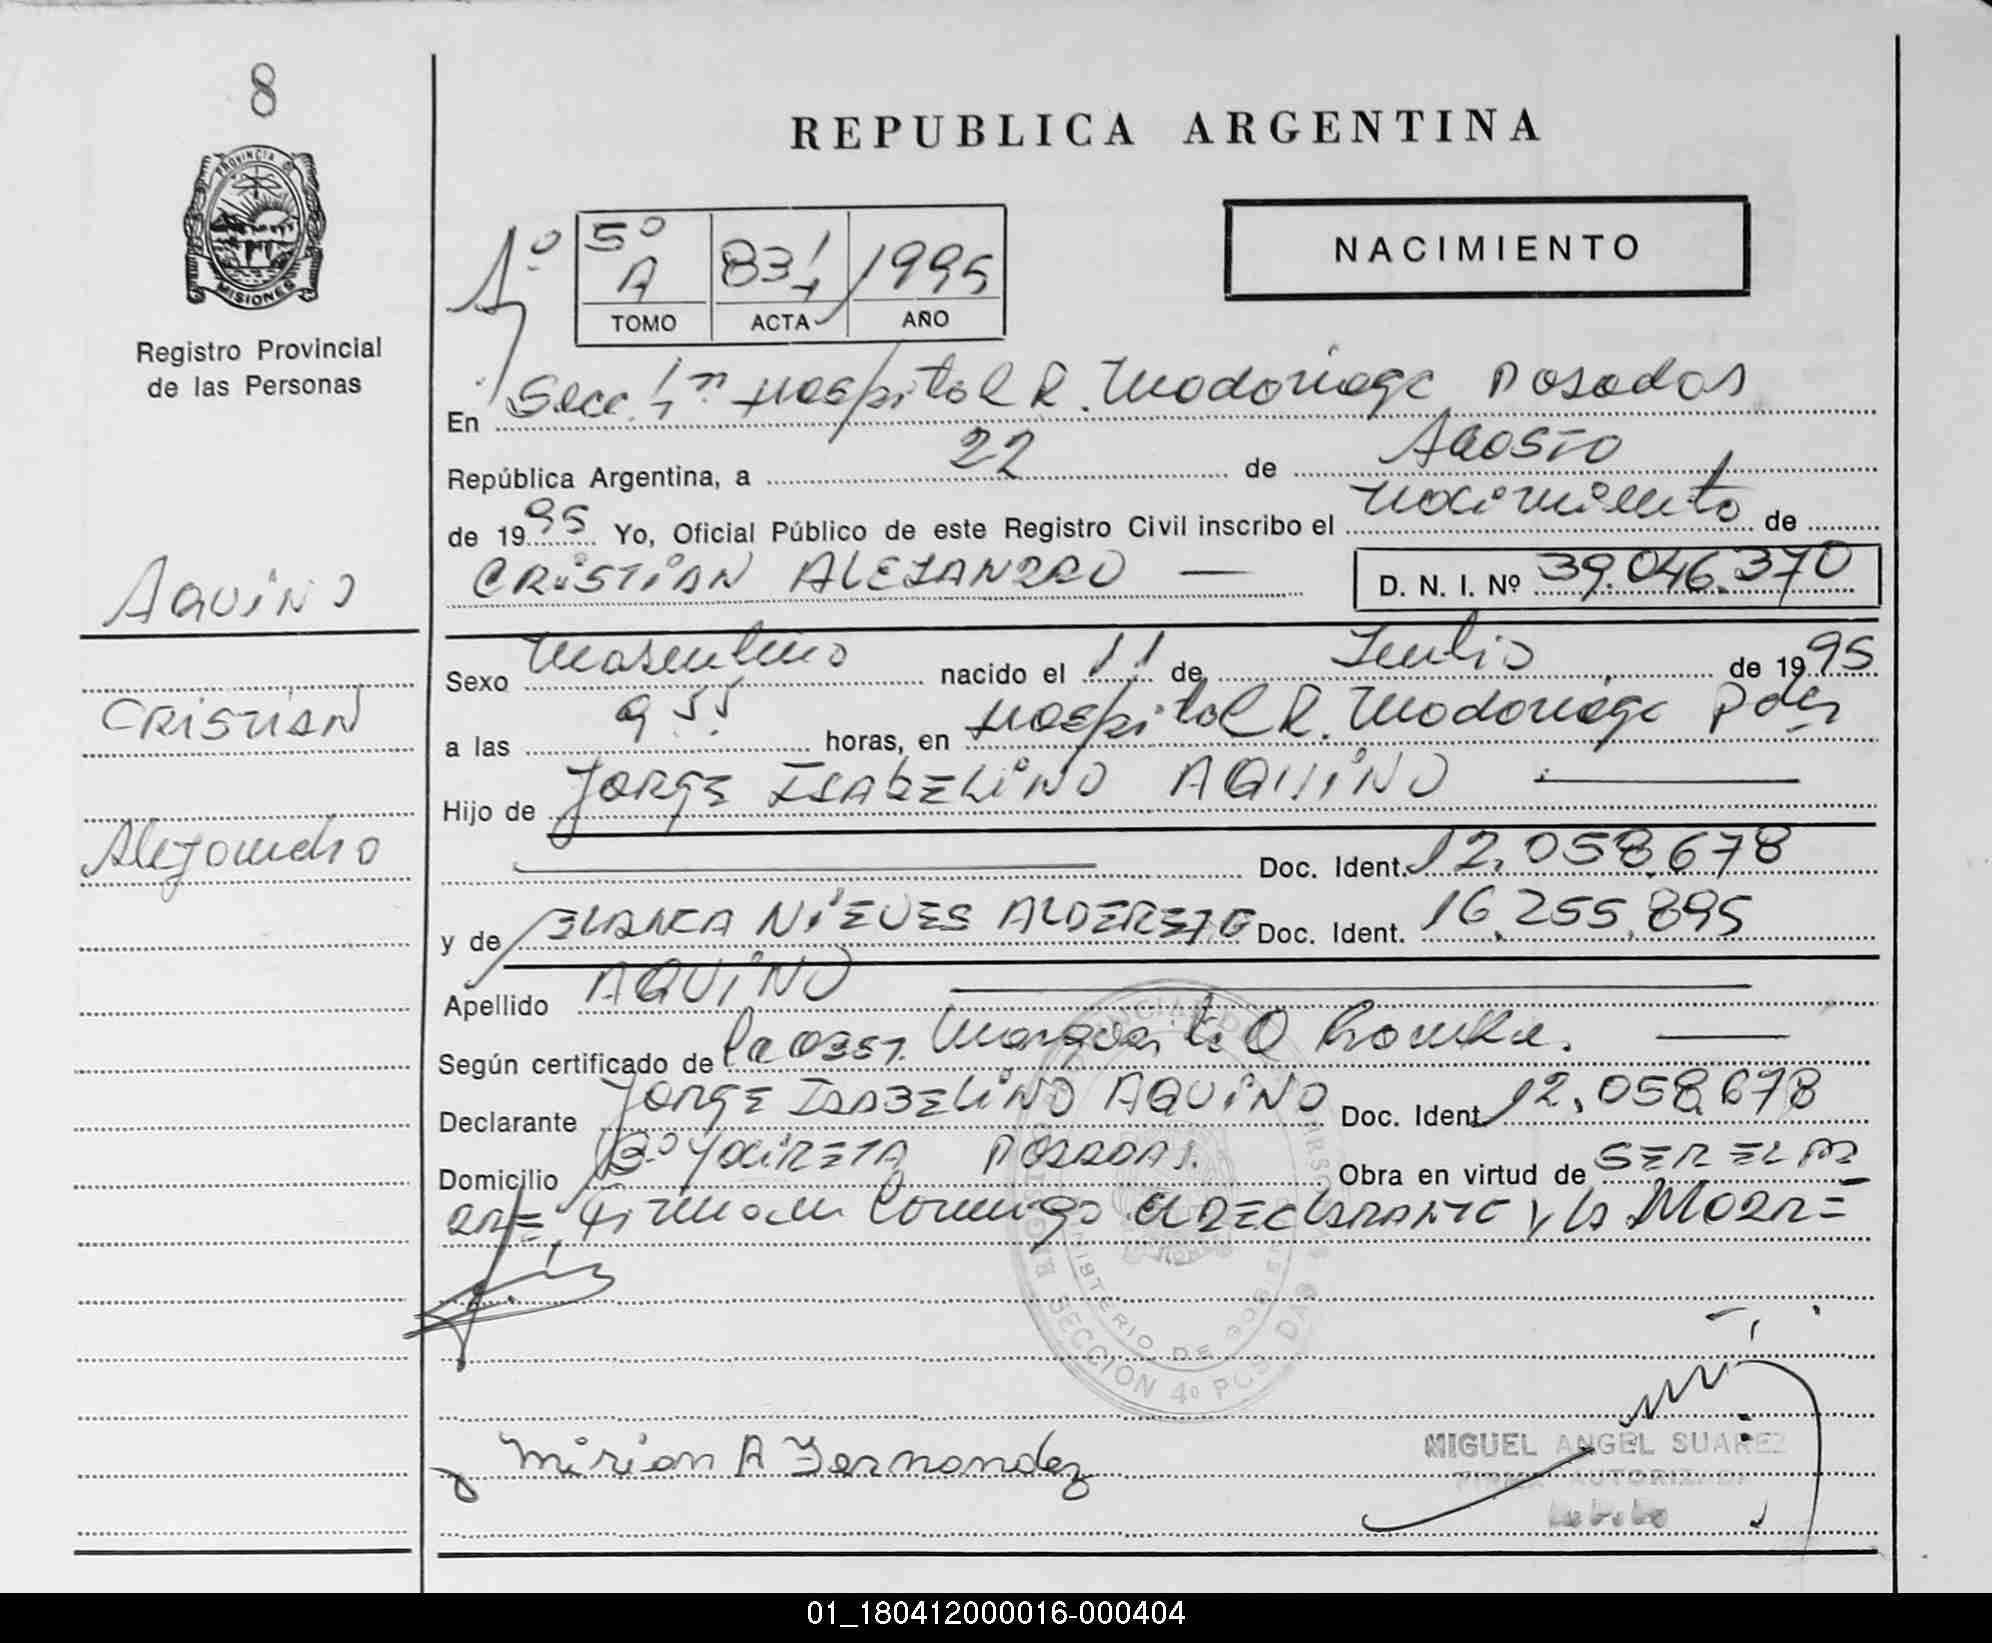 8
PROVINCIA D
MISIONES
Registro Provincial
de las Personas
Aquino
Cristian
Alejandro
REPUBLICA ARGENTINA
NACIMIENTO
1º
5º A 831 1995
TOMO ACTA AÑO
En Secc. 1ra Hospital R. Madariaga Posadas
República Argentina, a 22 de Agosto
de 1995 Yo, Oficial Público de este Registro Civil inscribo el nacimiento de
CRISTIAN ALEJANDRO — D. N. I. Nº 39.046.370
Sexo Masculino nacido el 11 de Julio de 1995
a las 9 55 horas, en Hospital R. Madariaga Pdas
Hijo de JORGE ISABELINO AQUINO —
— Doc. Ident. 12.058.678
y de BLANCA NIEVES ALDERETE Doc. Ident. 16.255.895
Apellido AQUINO —
Según certificado de la Obst. Margarita Q —
Declarante JORGE ISABELINO AQUINO Doc. Ident 12.058.678
Domicilio Bº Yaciretá POSADAS. Obra en virtud de SER EL PA
DRE, firman conmigo el DECLARANTE y la MADRE
MINISTERIO DE GOBIE
SECCION 4º POSADAS
Mirian A Fernandez
MIGUEL ANGEL SUAREZ
FIRMA AUTORIZADA
01_180412000016-000404